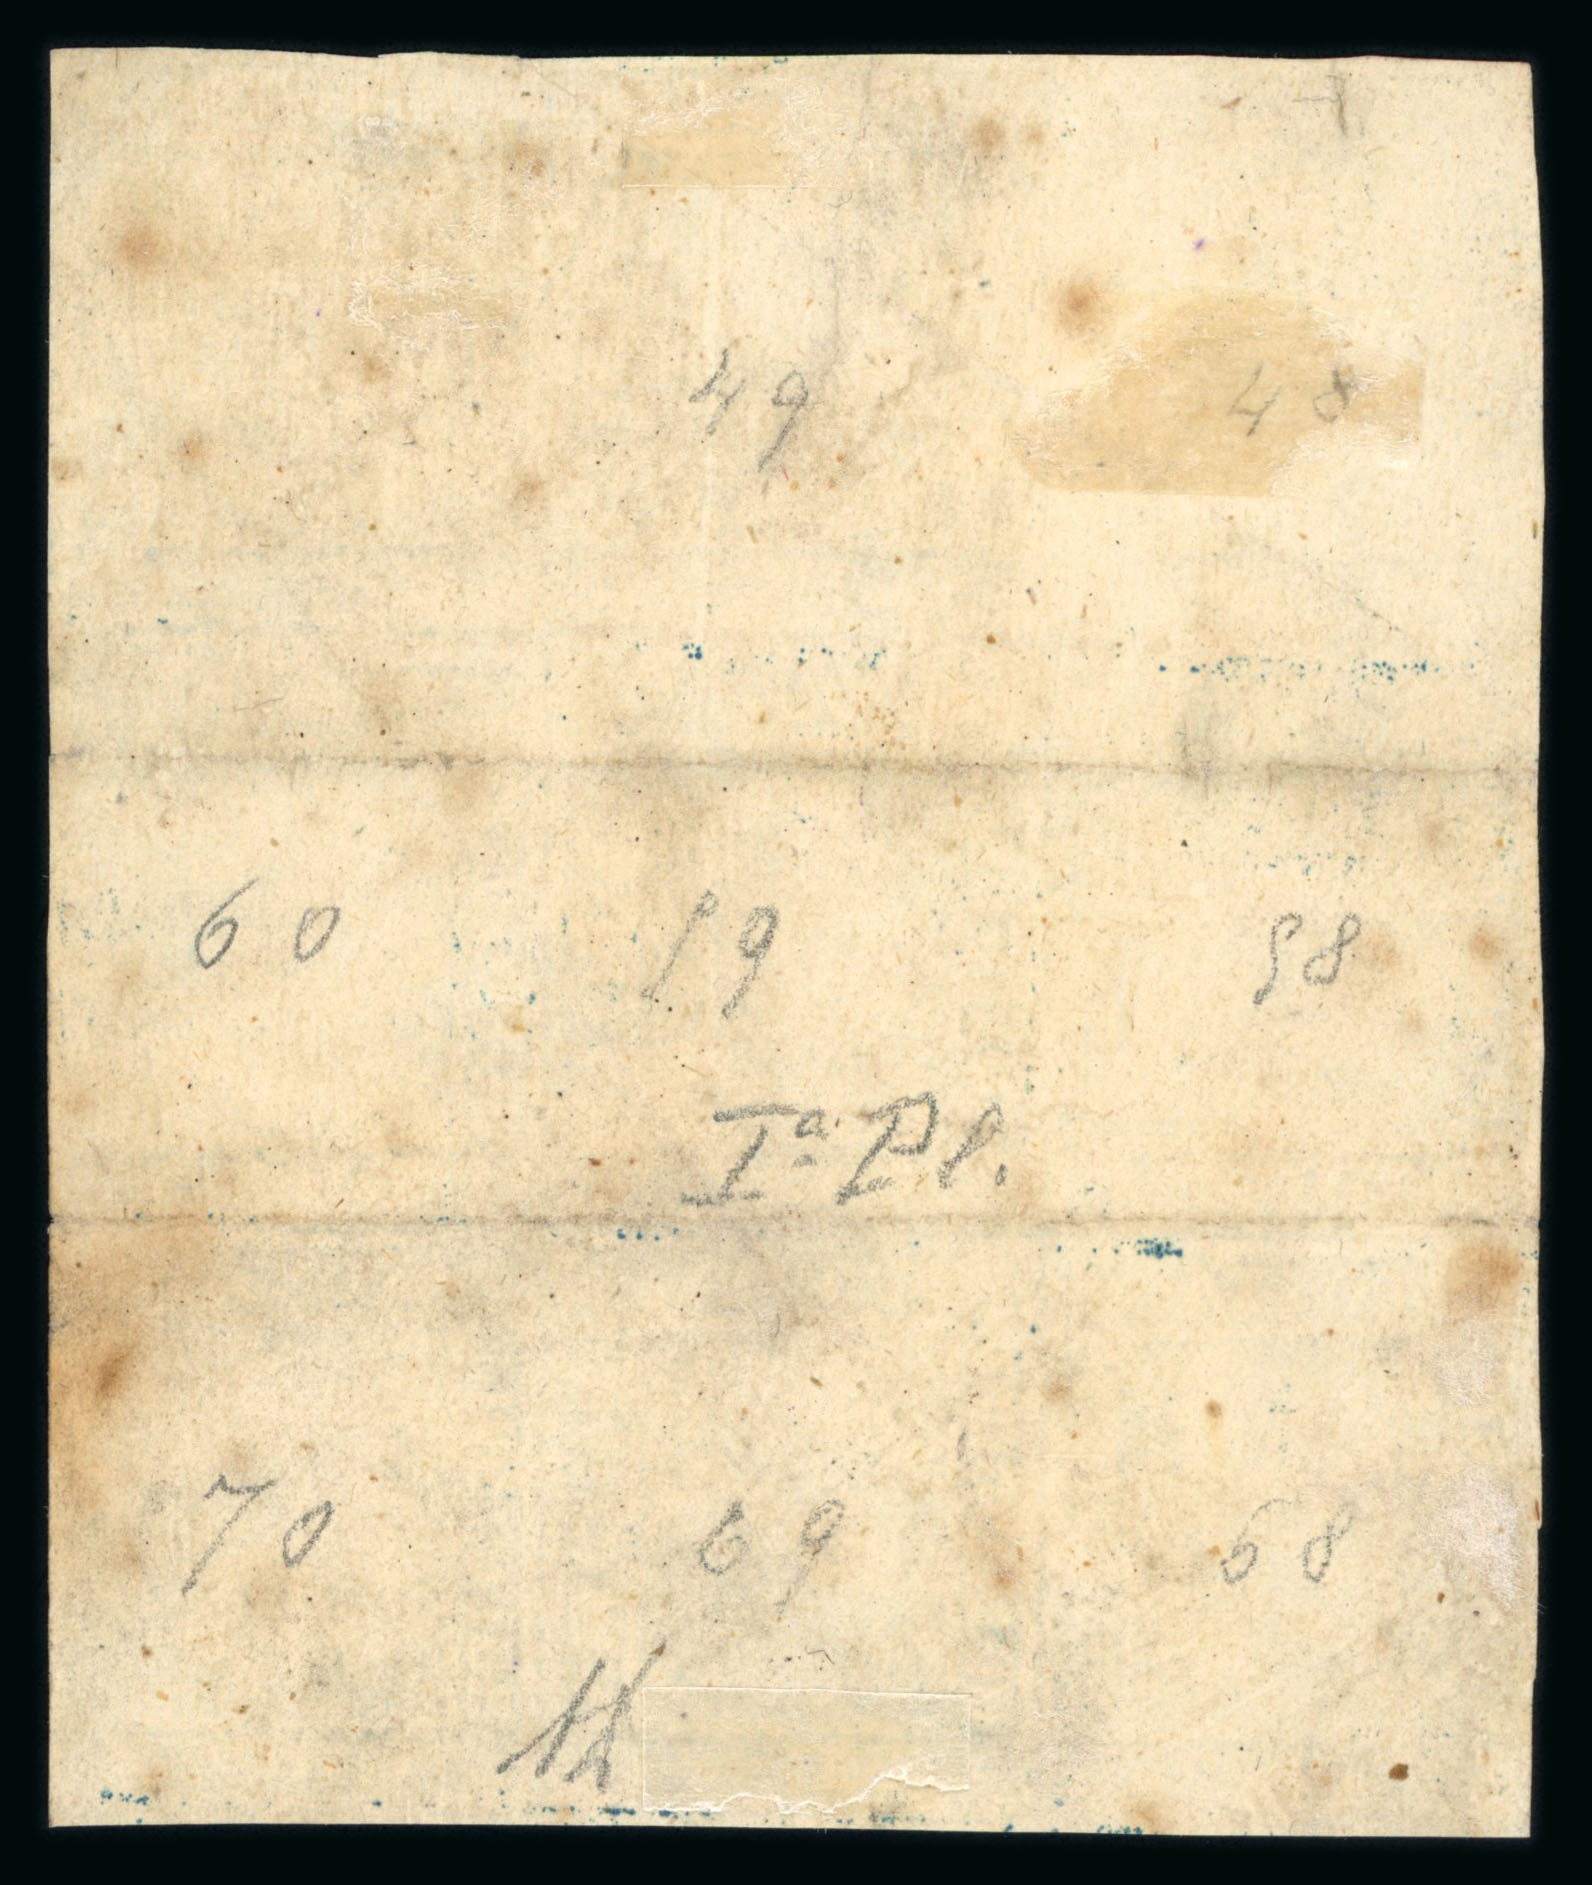 49 48
60 59 58
Iª Pl.
70 69 68